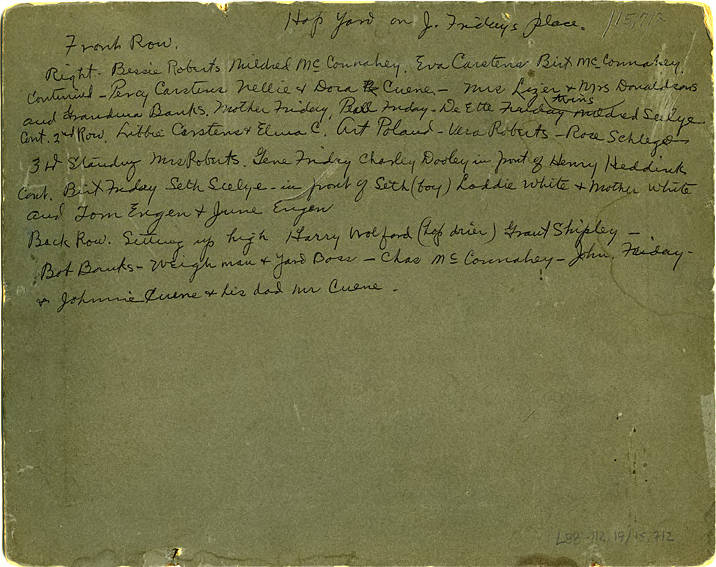 Hop Yard on J. Friday's place. 15,712
Front Row.
Right - Bessie Roberts Mildred McConnahey, Eva Carstens Birt McConnahey,
Continued - Percy Carstens Nellie & Dora Cuene - Mrs Lizer & Mrs Donaldsons
and Grandma Banks, Mother Friday, Ball Friday - De Ette Friday twins Mildred Seelye
Cont. 2nd Row. Libbie Carstens & Elma C. Art Poland - Vera Roberts - Rose Schlegel
3d Standing Mrs Roberts. Gene Friday Charley Dooley in front of Henry Heddink
Cont. Birt Friday Seth Seelye - in front of Seth (boy) Laddie White & Mother White
and Tom Engen & June Engen
Back Row. Sitting up high Harry Wolford (hop drier) Grant Shipley -
Bob Banks - Weigh man & Yard Boss - Chas McConnahey - John Friday -
& Johnnie Cuene & his dad Mr Cuene.
L82-112.19/15,712